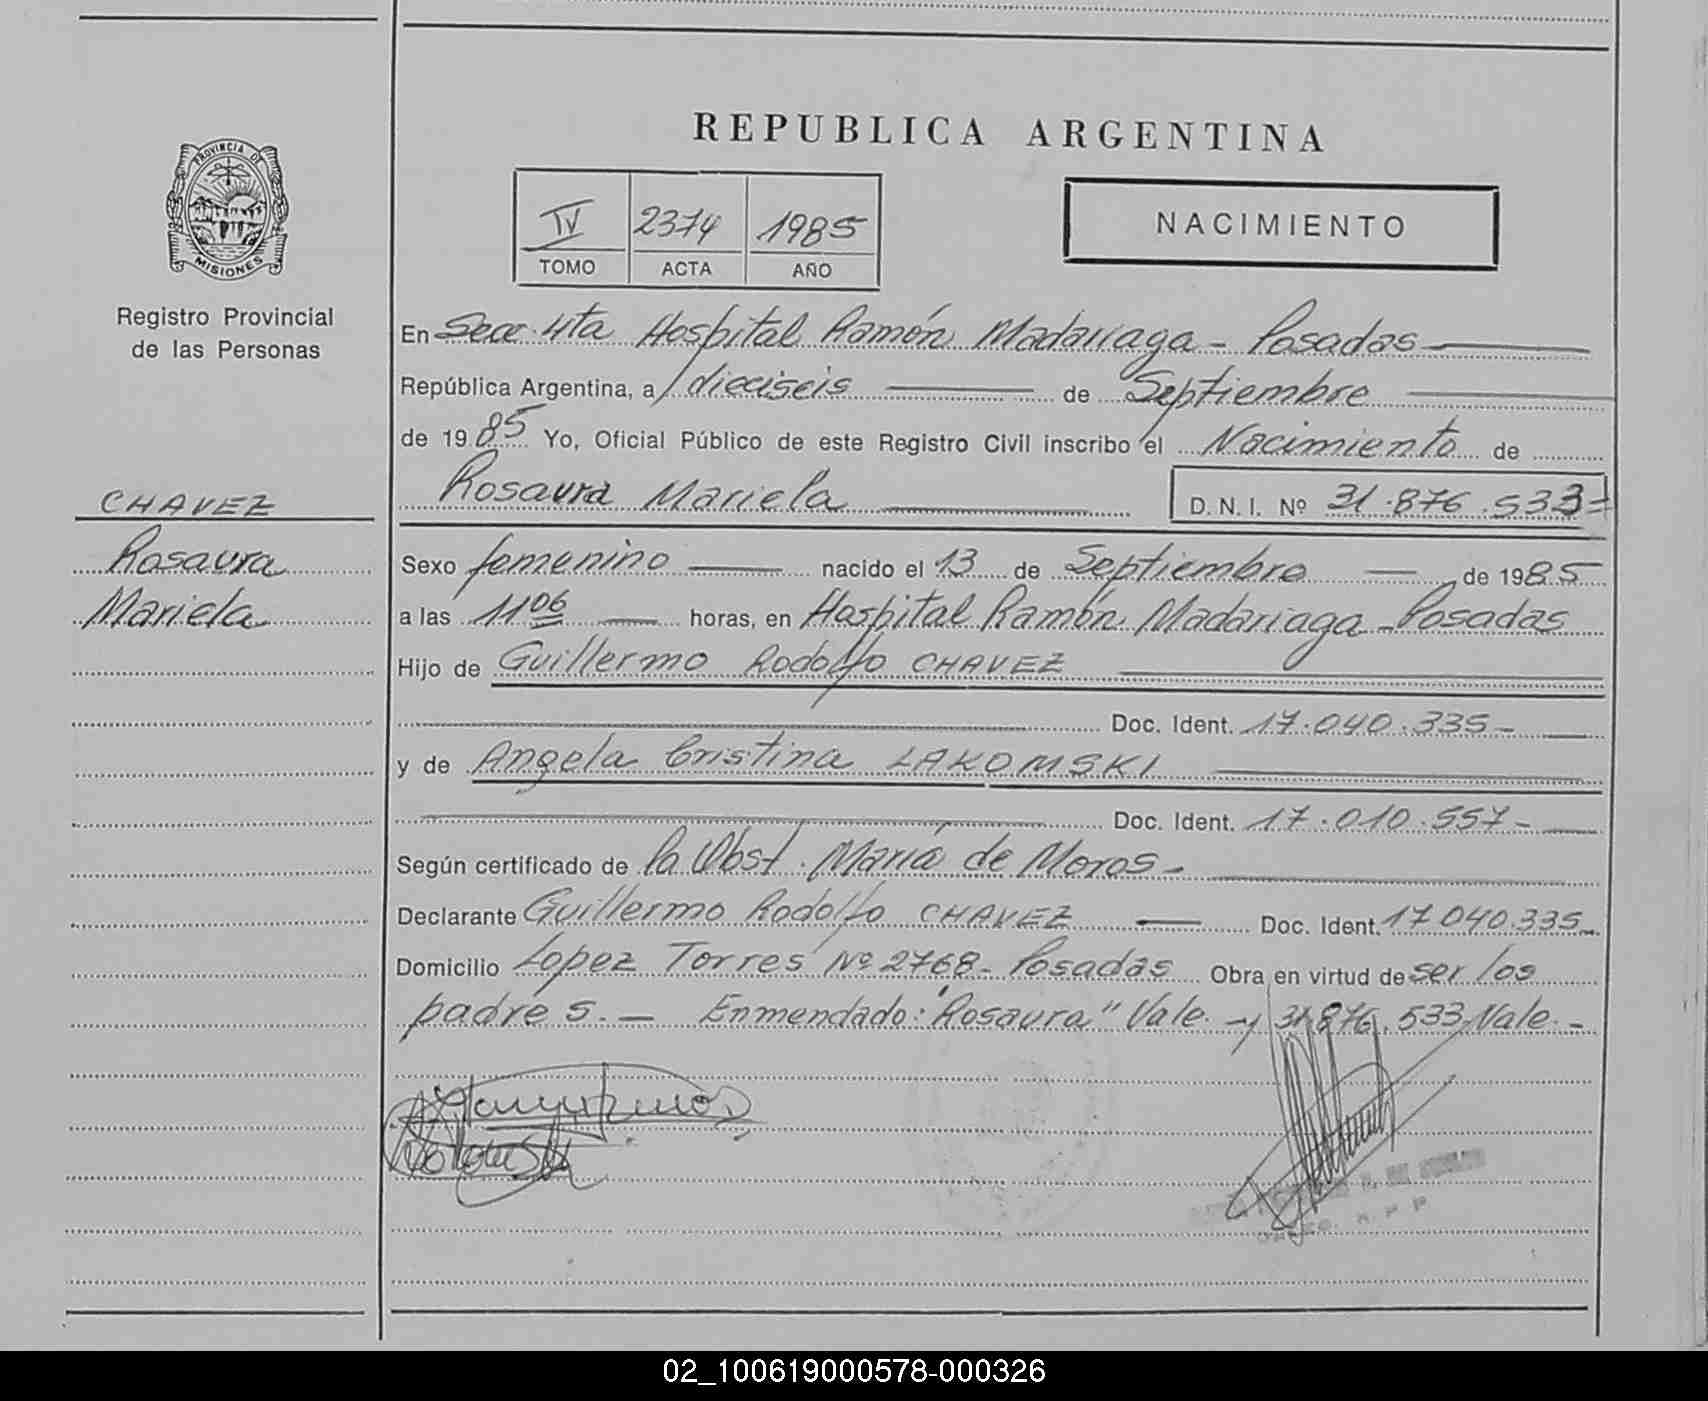 REPUBLICA ARGENTINA
PROVINCIA DE
MISIONES
Registro Provincial
de las Personas
IV 2374 1985
TOMO ACTA AÑO
NACIMIENTO
En Secc. 4ta Hospital Ramón Madariaga - Posadas
República Argentina, a dieciseis de Septiembre
de 1985 Yo, Oficial Público de este Registro Civil inscribo el Nacimiento de
Rosaura Mariela D. N. I. Nº 31.876.533=
CHAVEZ
Rosaura
Mariela
Sexo femenino nacido el 13 de Septiembre de 1985
a las 11 06 horas, en Hospital Ramón Madariaga - Posadas
Hijo de Guillermo Rodolfo CHAVEZ
Doc. Ident. 17.040.335-
y de Angela Cristina LAKOMSKI
Doc. Ident. 17.010.557-
Según certificado de la Obst. María de Moros-
Declarante Guillermo Rodolfo CHAVEZ Doc. Ident. 17.040.335-
Domicilio Lopez Torres Nº 2768- Posadas Obra en virtud de ser los
padres.- Enmendado: "Rosaura" Vale - y 31.876.533 Vale.-
02_100619000578-000326